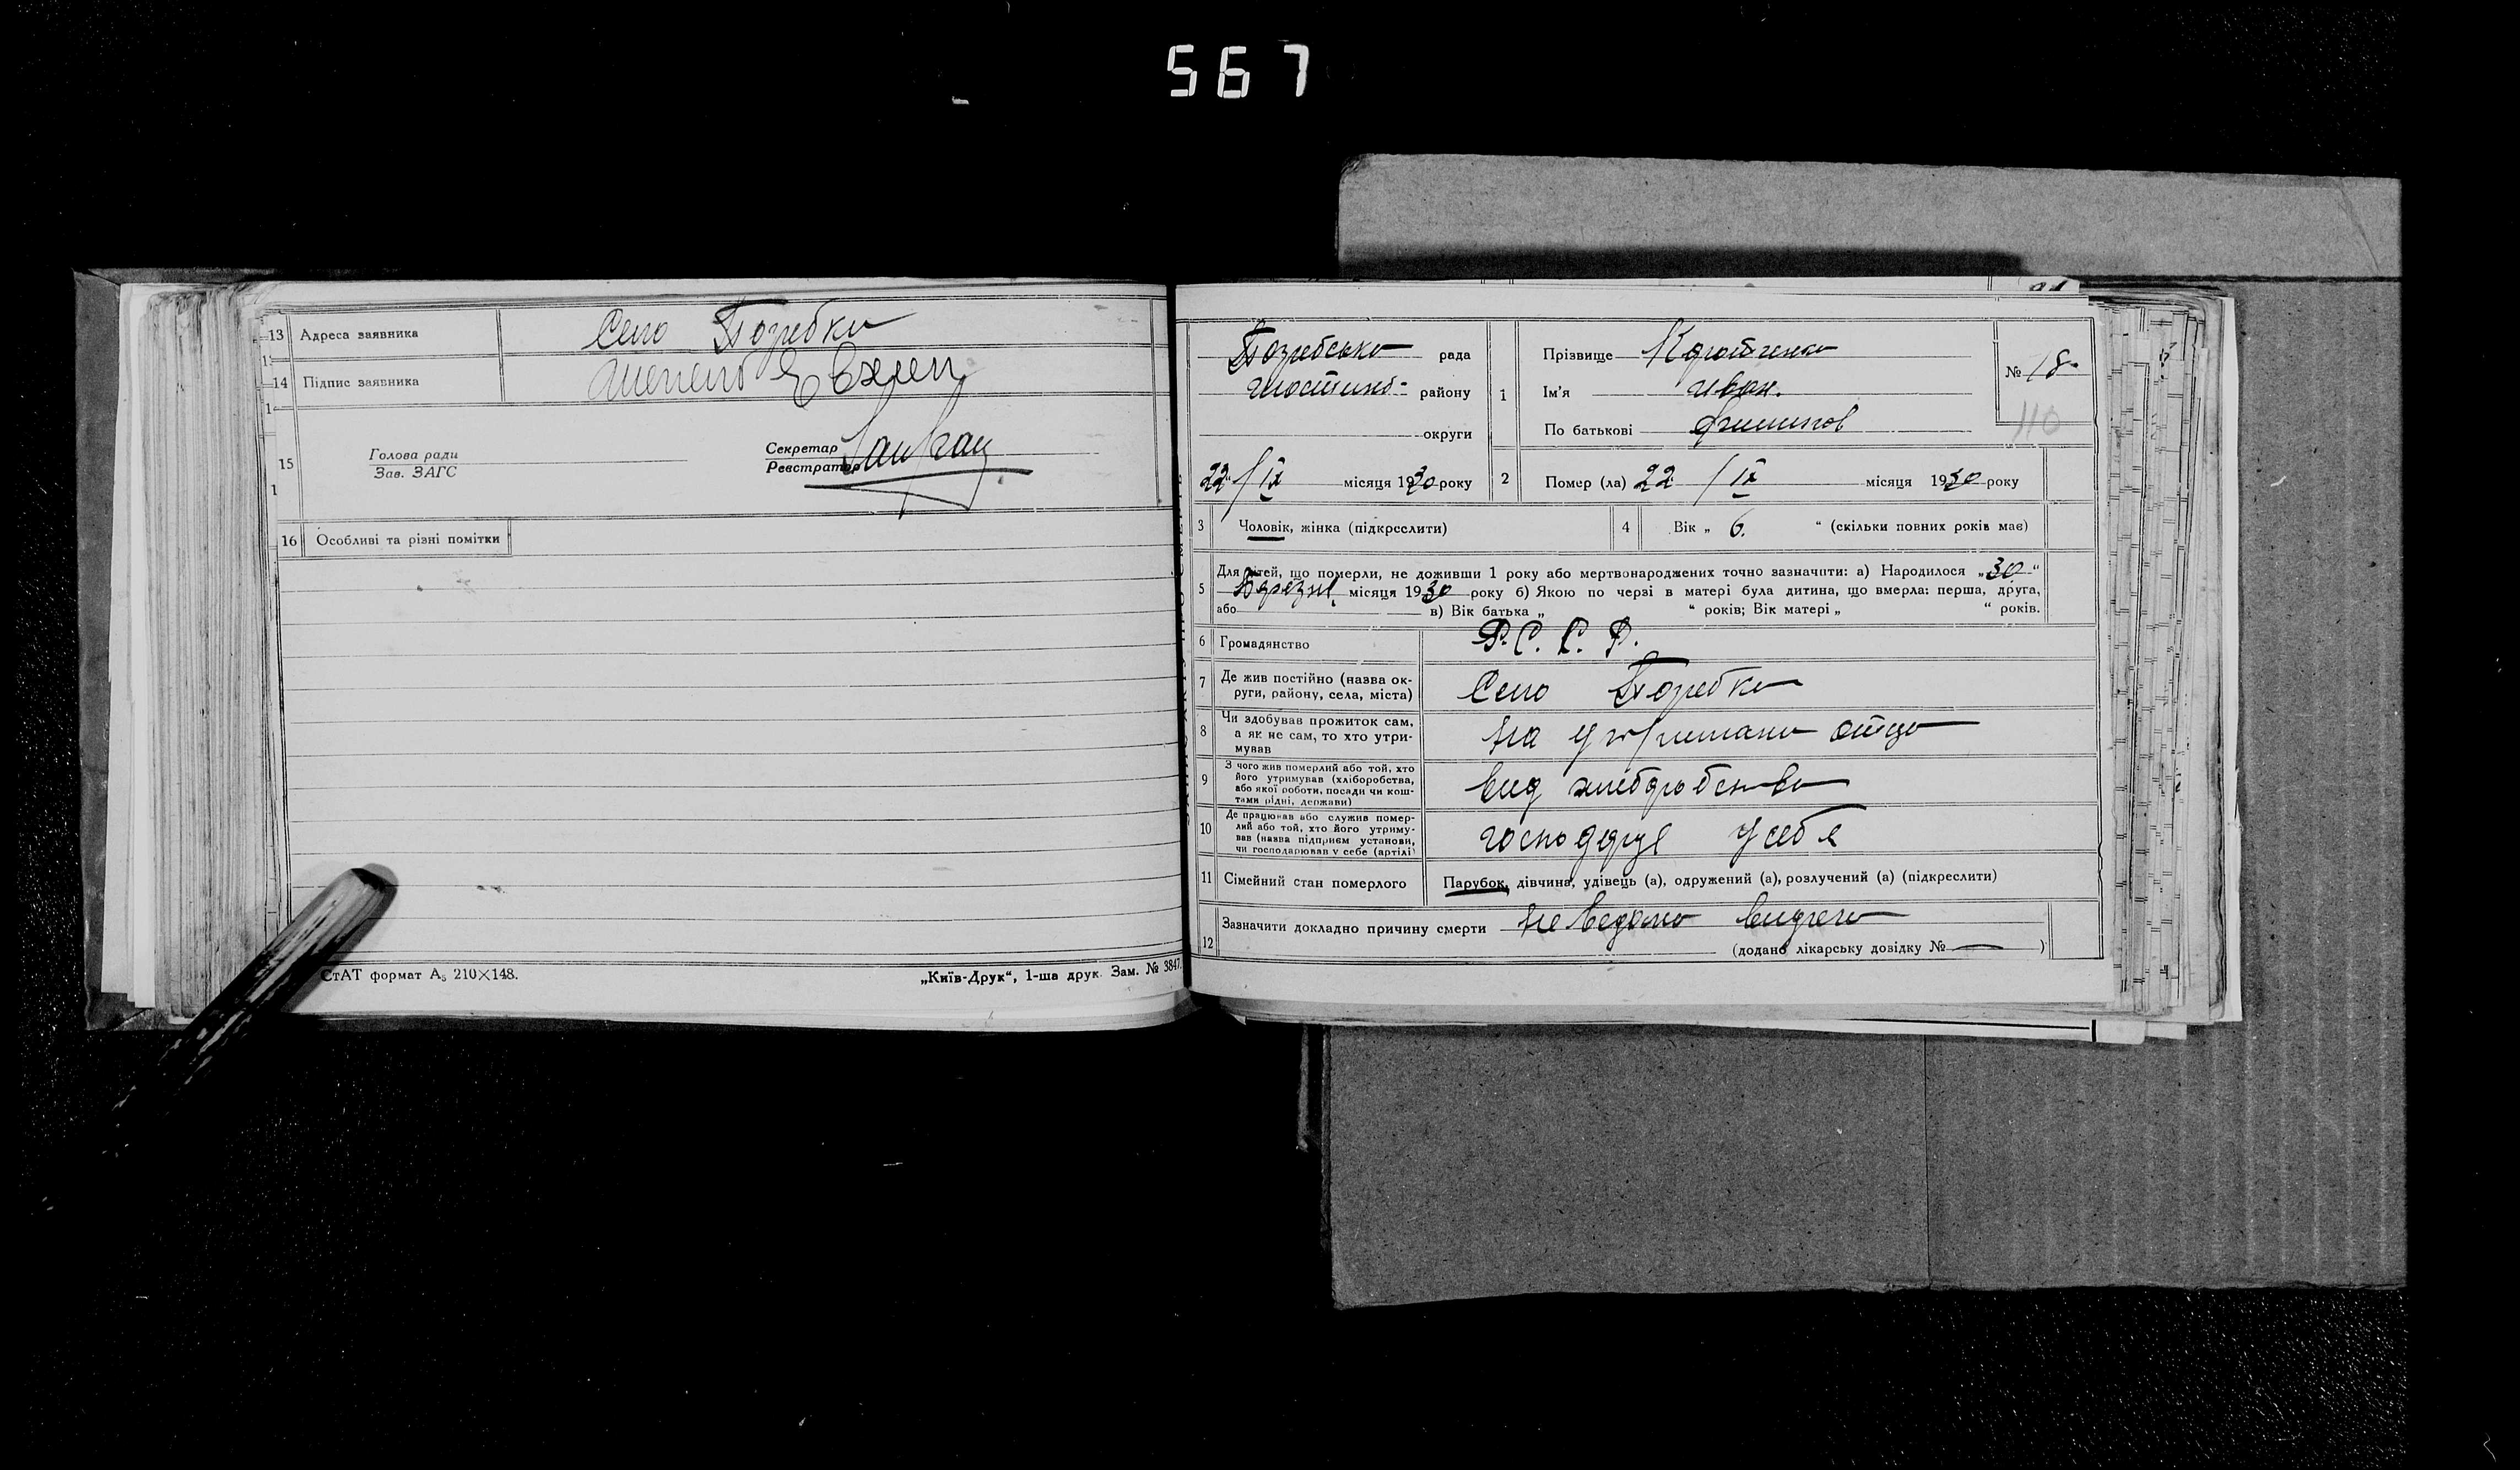 567
13 Адреса заявника Село Погребки
14 Підпис заявника Евхен
15 Голова ради
Зав. ЗАГС
Секретар
Реєстратор
16 Особливі та різні помітки
СтАТ формат А₅ 210×148.
„Київ-Друк“, 1-ша друк. Зам. № 3847.
Погребсько рада
району
округи
22 / IX місяця 1930 року
1 Прізвище Коротченко
Ім'я иван.
По батькові
№ 18
110
2 Помер (ла) 22 / IX місяця 1930 року
3 Чоловік, жінка (підкреслити)
4 Вік „ 6. “ (скільки повних років має)
5 Для дітей, що померли, не доживши 1 року або мертвонароджених точно зазначити: а) Народилося „30“
Березня місяця 1930 року б) Якою по черзі в матері була дитина, що вмерла: перша, друга,
або в) Вік батька „ “ років; Вік матері „ “ років.
6 Громадянство Р. С. С. Р.
7 Де жив постійно (назва ок-
руги, району, села, міста) Село Погребки
8 Чи здобував прожиток сам,
а як не сам, то хто утри-
мував На утримани отца
9 З чого жив померлий або той, хто
його утримував (хліборобства,
або якої роботи, посади чи кош-
тами рідні, держави) вид хлеборобства
10 Де працював або служив помер-
лий або той, хто його утриму-
вав (назва підприєм установи,
чи господарював у себе (артілі) господарує у себя
11 Сімейний стан померлого Парубок, дівчина, удівець (а), одружений (а), розлучений (а) (підкреслити)
12 Зазначити докладно причину смерти Неведомо
(додано лікарську довідку № — )